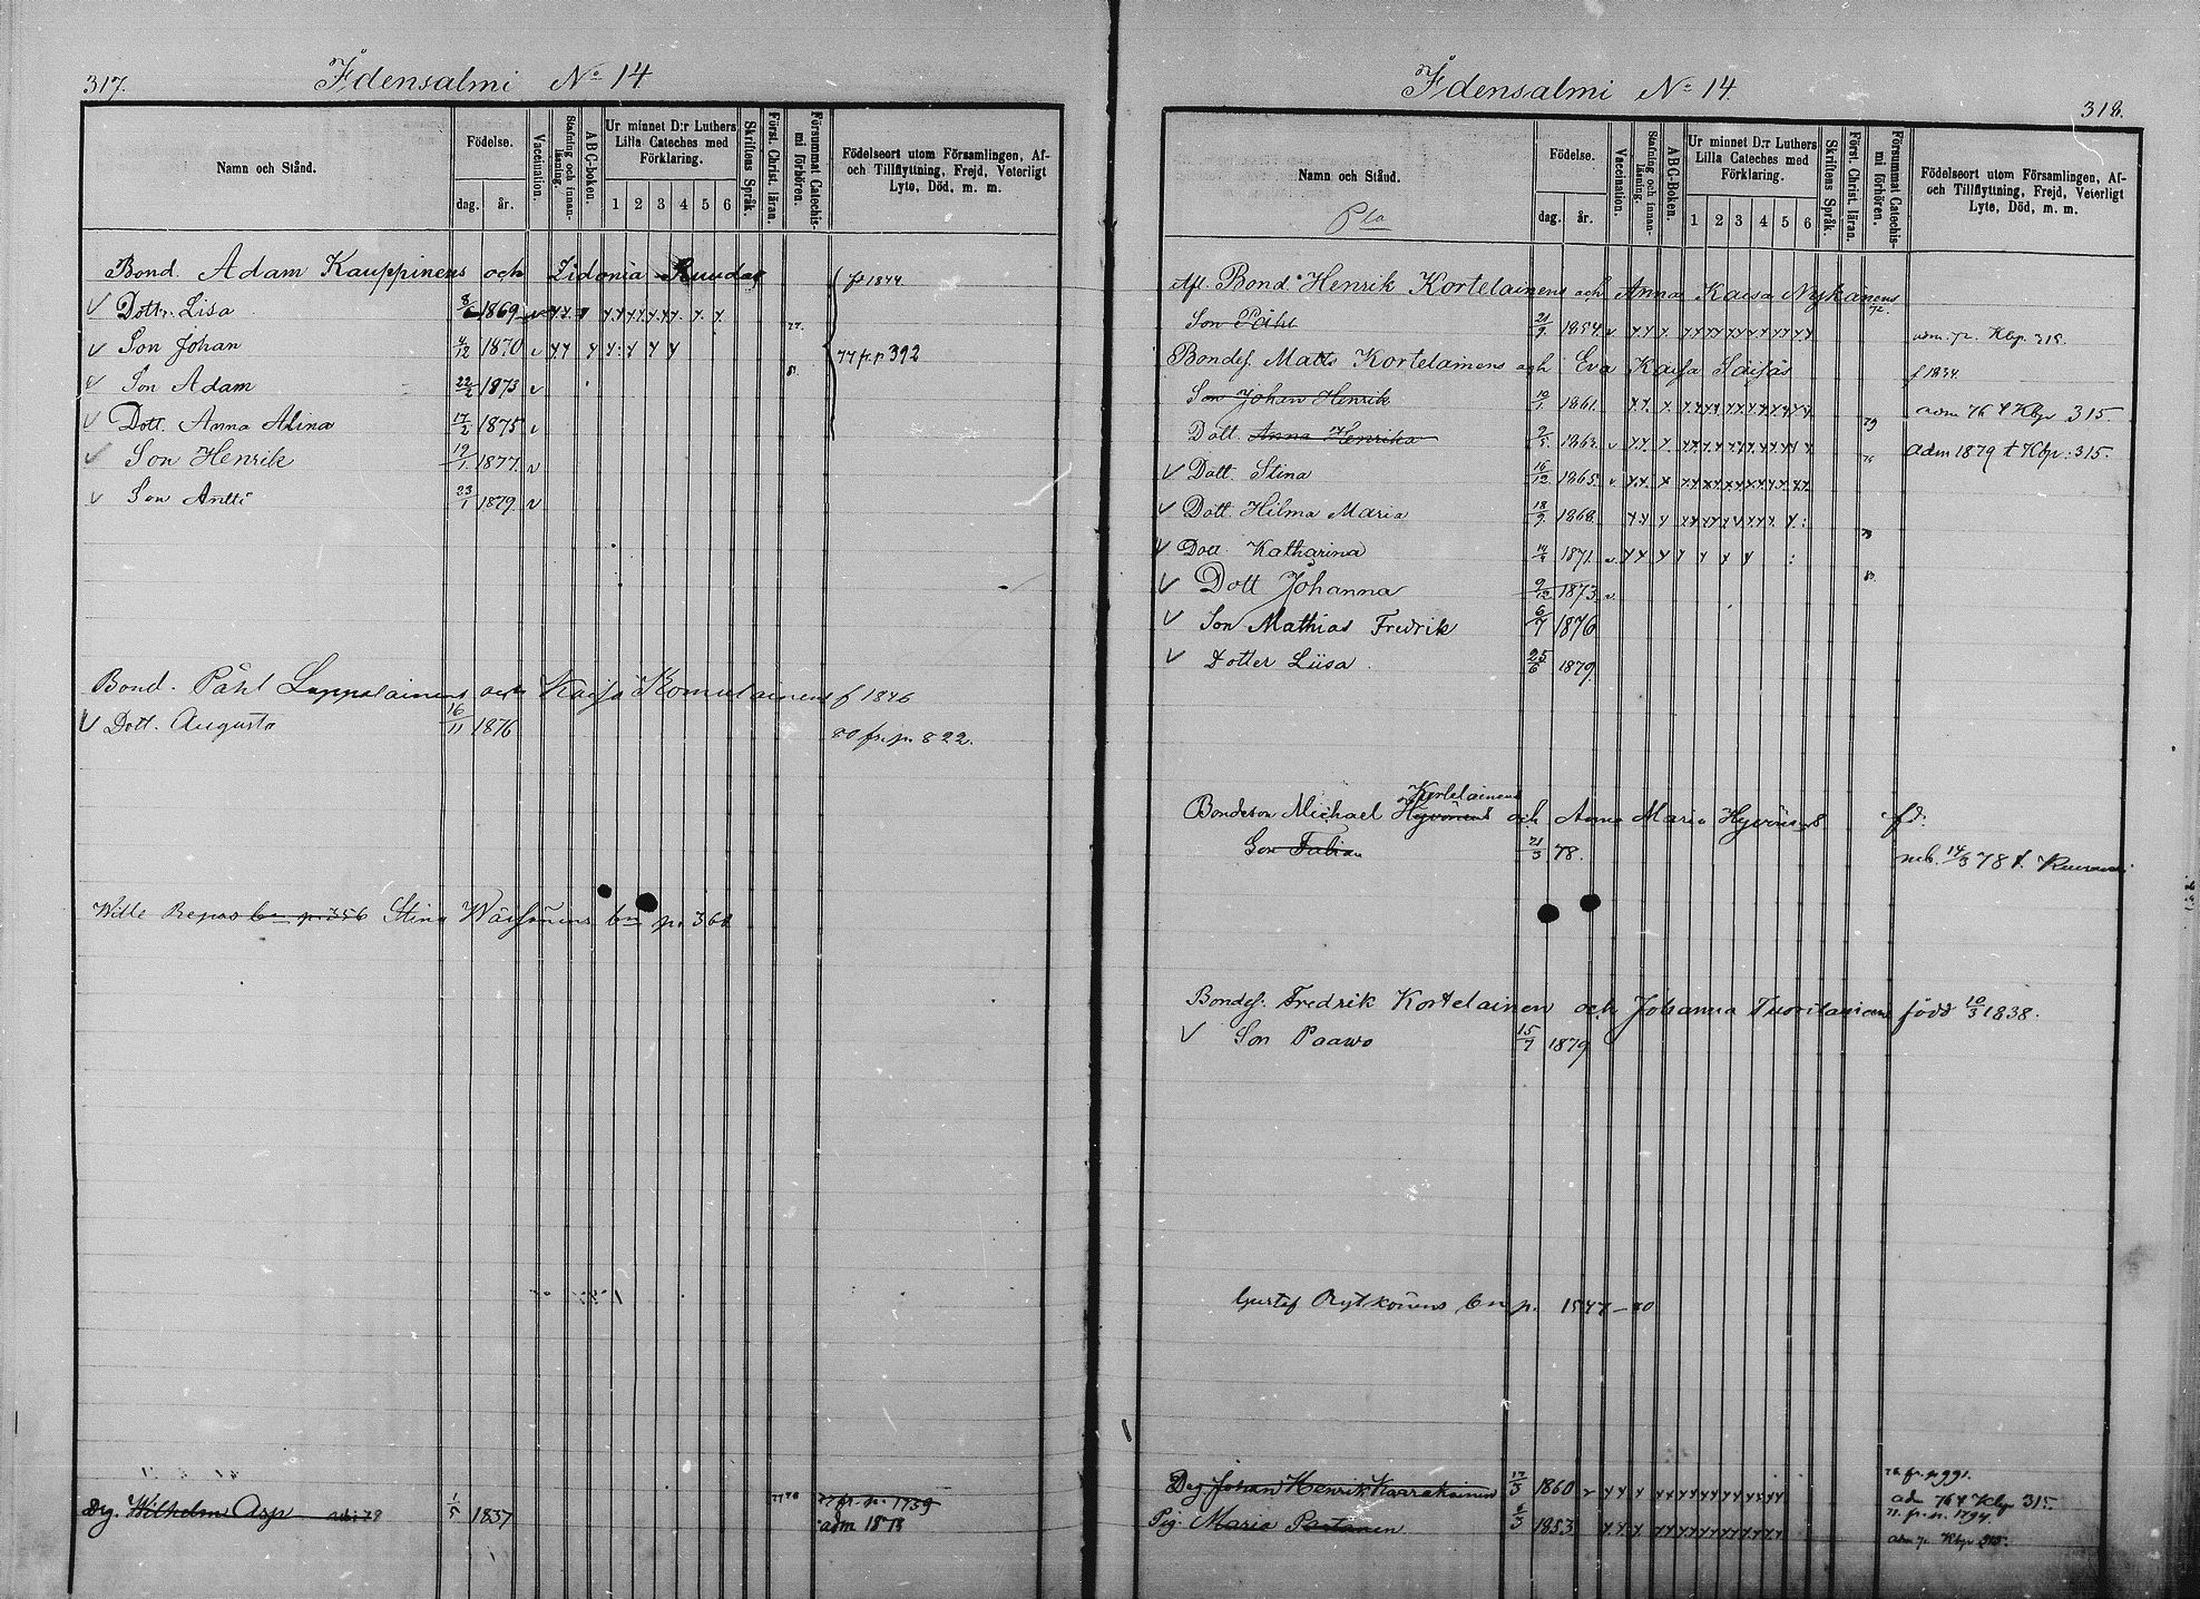 317.
Idensalmi No 14
Namn och Stånd.
Födelse.
dag.
år.
Vaccination.
Stafning och innan-
läsning.
ABC-boken.
Ur minnet D:r Luthers
Lilla Cateches med
Förklaring.
1 2 3 4 5 6
Skriftens Språk.
Först. Christ. läran.
Försummat Catechis-
mi förhören.
Födelseort utom Församlingen, Af-
och Tillflyttning, Frejd, Veterligt
Lyte, Död, m. m.
Bond. Adam Kauppinens och Zidonia f 1844
Dottr. Lisa 8/6 1869
Son Johan 4/12 1870 77 fr. p 392
Son Adam 22/2 1873
Dott. Anna Alina 17/2 1875
Son Henrik 19/1 1877
Son Antti 23/1 1879
Bond. Påhl Lappalainens och Kaisa Komulainens f 1846
Dott. Augusta 16/11 1876 80 fr. p. 822.
Wille Repas bn p. 356 Stina bn p. 368
Drg. Wilhelm Asp 1/5 1837 77 fr. p. 1739
adm 1878
Idensalmi No 14.
318.
Namn och Stånd.
Födelse.
dag.
år.
Vaccination.
Stafning och innan-
läsning.
ABC-Boken.
Ur minnet D:r Luthers
Lilla Cateches med
Förklaring.
1 2 3 4 5 6
Skriftens Språk.
Först. Christ. läran.
Försummat Catechis-
mi förhören.
Födelseort utom Församlingen, Af-
och Tillflyttning, Frejd, Veterligt
Lyte, Död, m. m.
Afl. Bond. Henrik Kortelainens och Anna Kaisa Nykänens
Son Påhl 21/9 1854 adm. 72. Kbp. 318.
Bondes. Matts Kortelainens och Eva Kaisa f 1834
Son Johan Henrik 10/1 1861 adm 76 t Kbp 315.
Dott. Anna Henrika 9/5 1863 adm 1879 t Kbp: 315.
Dott. Stina 16/12 1865
Dott. Hilma Maria 18/9 1868
Dott. Katharina 14/4 1871
Dott Johanna 9/12 1873
Son Mathias Fredrik 6/7 1876
Dotter Liisa 25/6 1879
Kortelainens
Bondeson Michael Hyvönens och Anna Maria Hyvönens fd.
Son Fabian 21/3 78.
Bondes. Fredrik Kortelainen och Johanna född 10/3 1838.
Son Paawo 15/7 1879
Gustaf bn p. 1547-80
Drg Johan Henrik Karrakainen 17/3 1860 76 fr. p 991.
ad 76 t Kbp 315.
Pig. Maria Partanen 6/3 1853 71. fr. p. 1794.
Kbp 315.